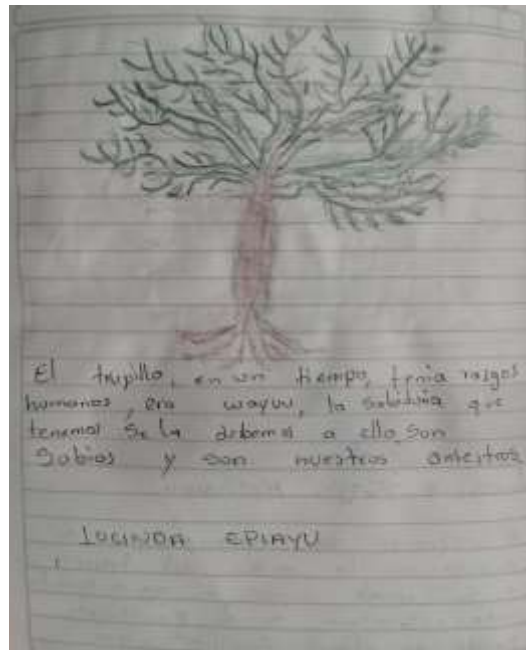 El trupillo, en un tiempo, tenia rasgos
humanos, era wayuu, la sabiduria que
tenemos se la debemos a ello, son
Sabios y son nuestros ancestros
LUCINDA EPIAYU